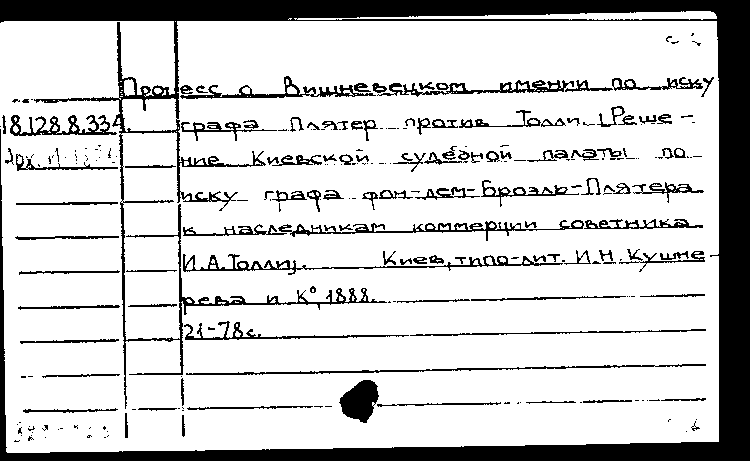 Процесс о Вишневецком имении по иску
18.128.8.334. графа Плятер против Толли. [Реше-
ние Киевской судебной палаты по
иску графа фон-дем-Броэль-Плятера
к наследникам коммерции советника
И.А.Толли]. Киев, типо-лит. И.Н.Кушне-
рева и К°, 1888.
21-78с.